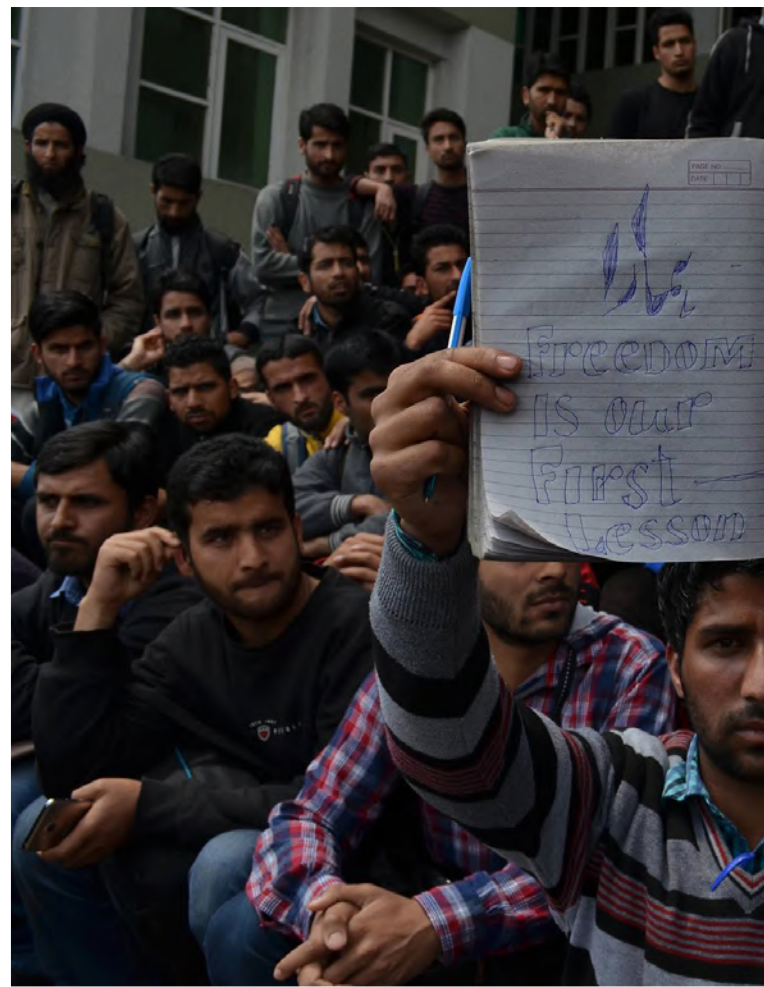 PAGE NO
DATE
ہمارا
FREEDOM
IS OUR
FIRST
LESSON